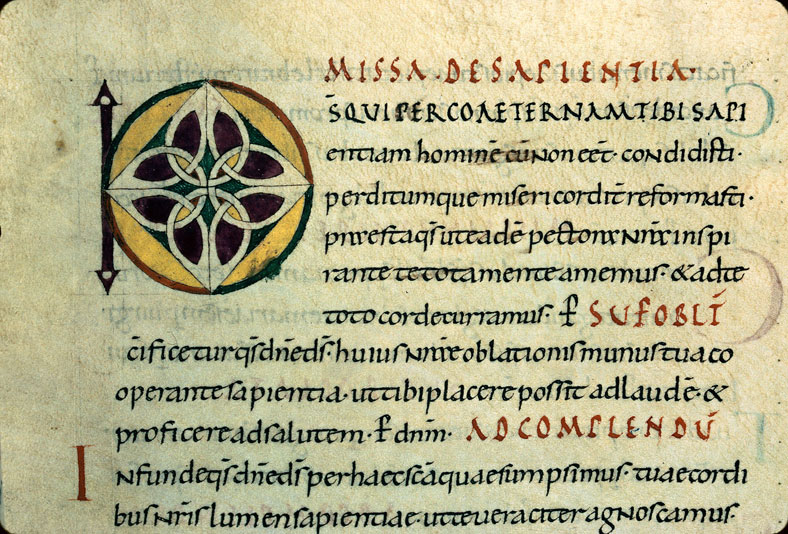 MISSA·DESAPIENTIA·
D̄S QUI PER COAETERNAM TIBI SAPI
entiam hominē cū non eēt· condidisti·
perditumque misericordit̄ reformasti·
p̄ ut eadē pectora nr̄a inspi
rante te tota mente amemus· & ad te
toto corde curramus· SUP OBLT̄
c̄ificetur qs̄ dn̄e ds̄· huius nr̄ae oblationis munus tua co
operante sapientia· ut tibi placere possit ad laudē· &
proficere ad salutem· dn̄m· AD COMPLENDŪ
Infunde qs̄ dn̄e ds̄ per haec sc̄a quae sumpsimus· tuae cordi
bus nr̄is lumen sapientiae· ut te veraciter agnoscamus·